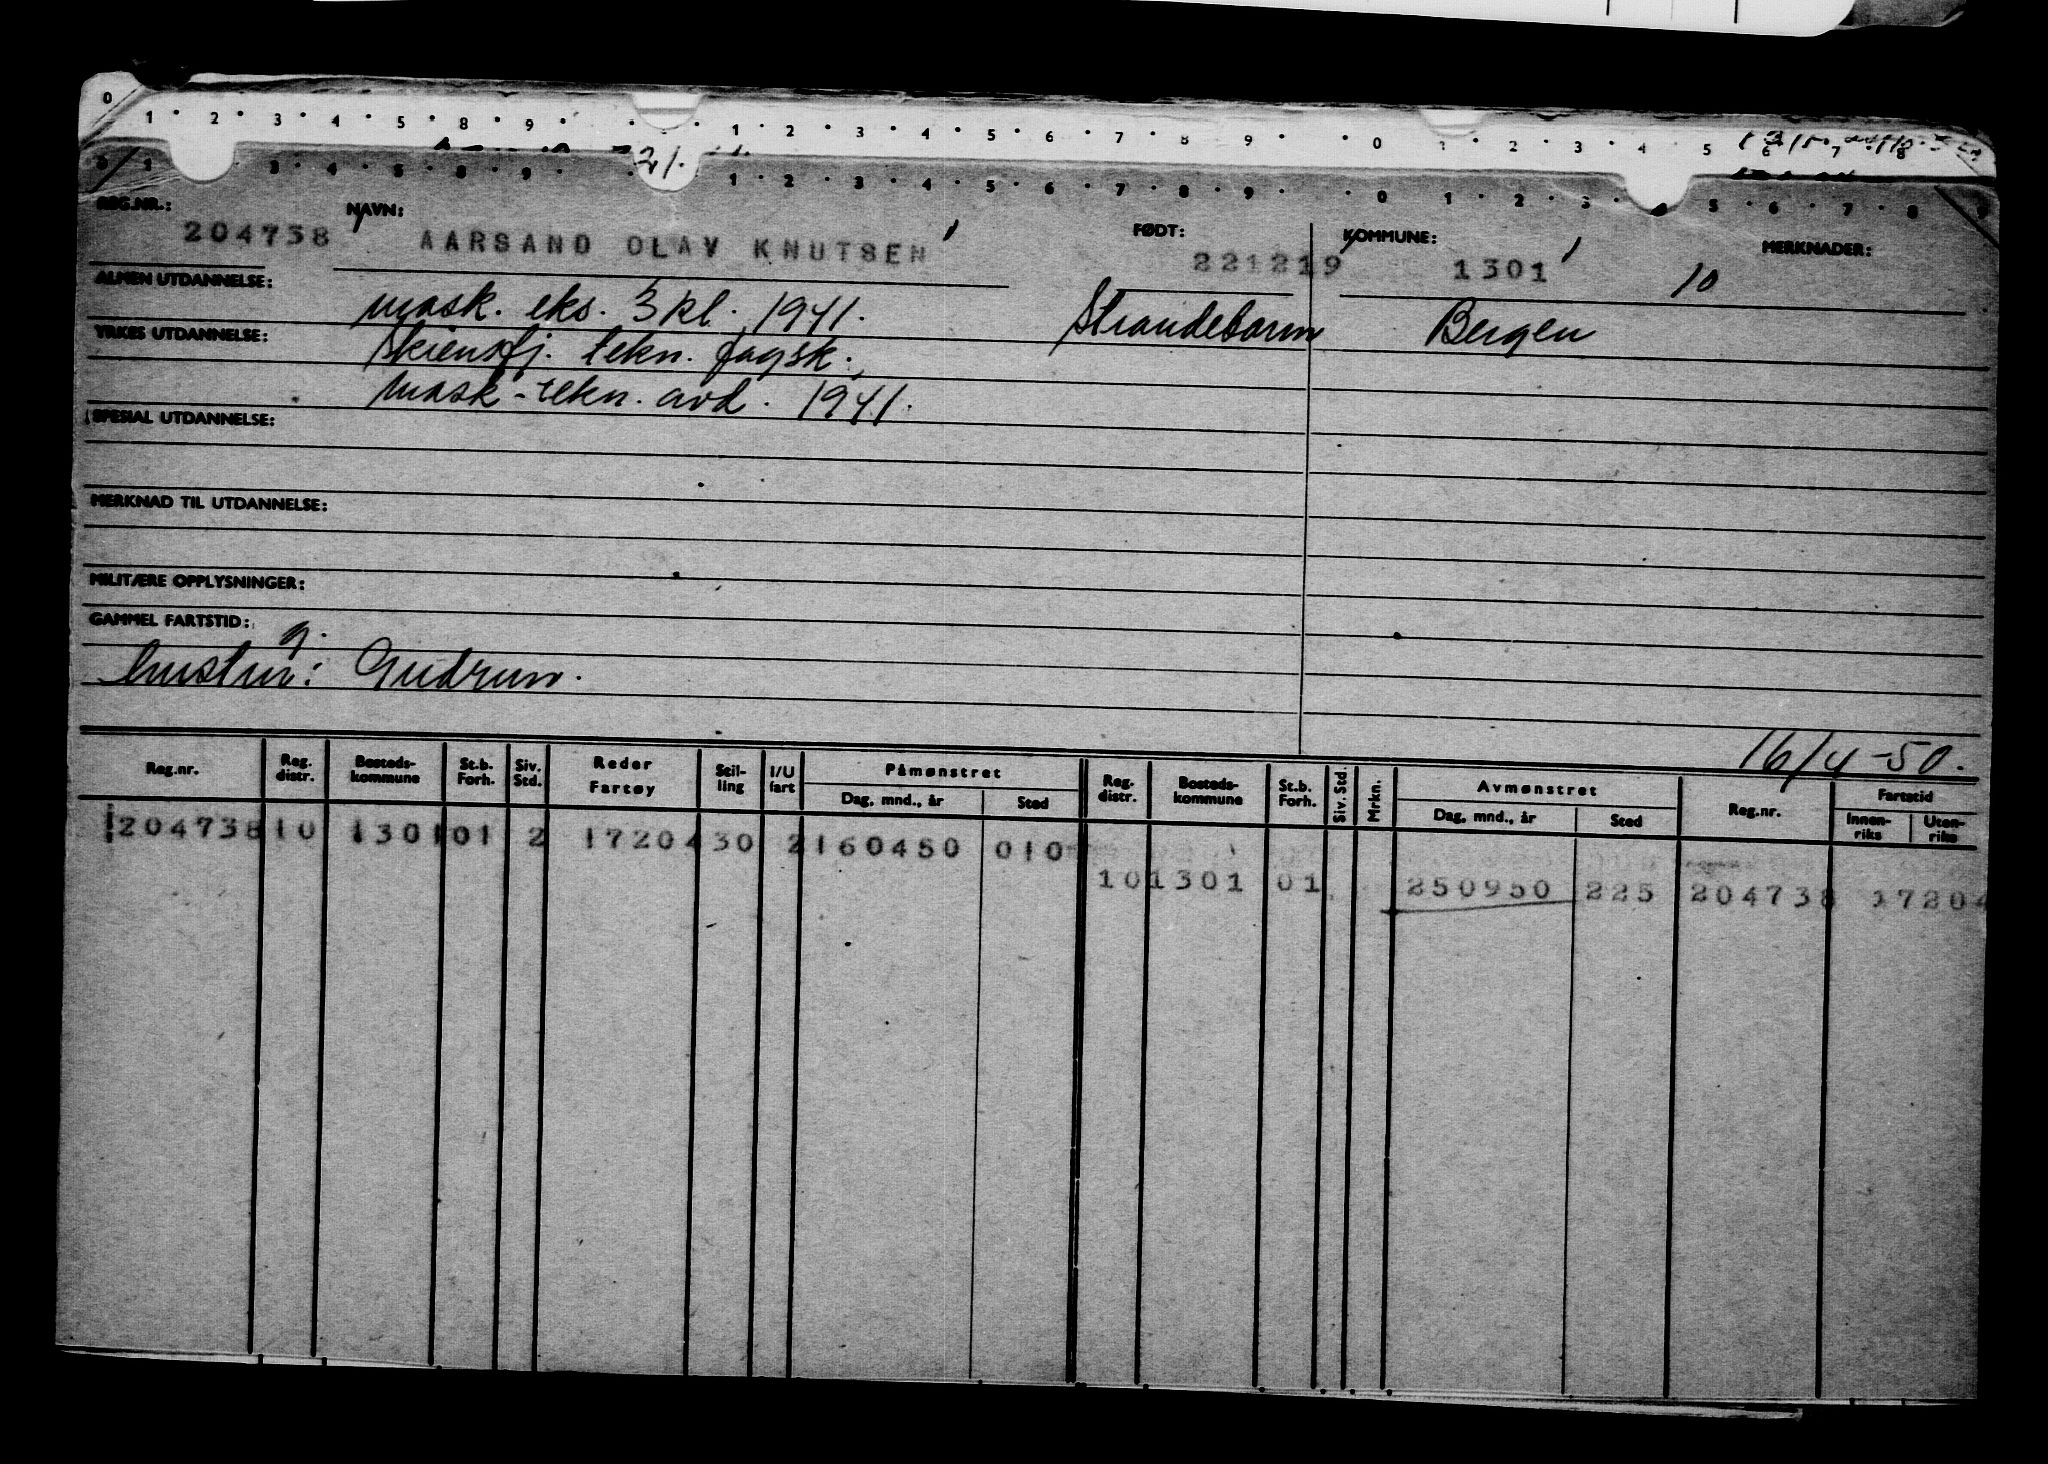 0 1 2 3 4 5 8 9 1 2 3 4 5 6 7 8 9 0 1 2 3 4 5 6 7 8
21.
0 1 3 4 5 8 9 1 2 3 4 5 6 7 8 9 0 1 2 3 4 5 6 7 8 9
REG.NR.: NAVN: FØDT: KOMMUNE: MERKNADER:
204738 AARSAND OLAV KNUTSEN 221219 1301 10
ALMEN UTDANNELSE: mask. eks. 3 kl. 1941. Strandebarm Bergen
YRKES UTDANNELSE: Skiensfj. tekn. fagsk.,
mask-tekn. avd. 1941.
SPESIAL UTDANNELSE:
MERKNAD TIL UTDANNELSE:
MILITÆRE OPPLYSNINGER:
GAMMEL FARTSTID: g.
hustru: Gudrun.
16/4-50.
Reg.nr. Reg. distr. Bosteds-kommune St.b. Forh. Siv. Std. Reder Fartøy Stil-ling I/U fart Påmønstret Dag, mnd., år Sted Reg. distr. Bosteds-kommune St.b. Forh. Siv. Std. Mrkn. Avmønstret Dag, mnd., år Sted Reg.nr. Fartstid Innen-riks Uten-riks
204738 10 1301 01 2 17204 30 2 160450 010
10 1301 01 250950 225 204738 17204